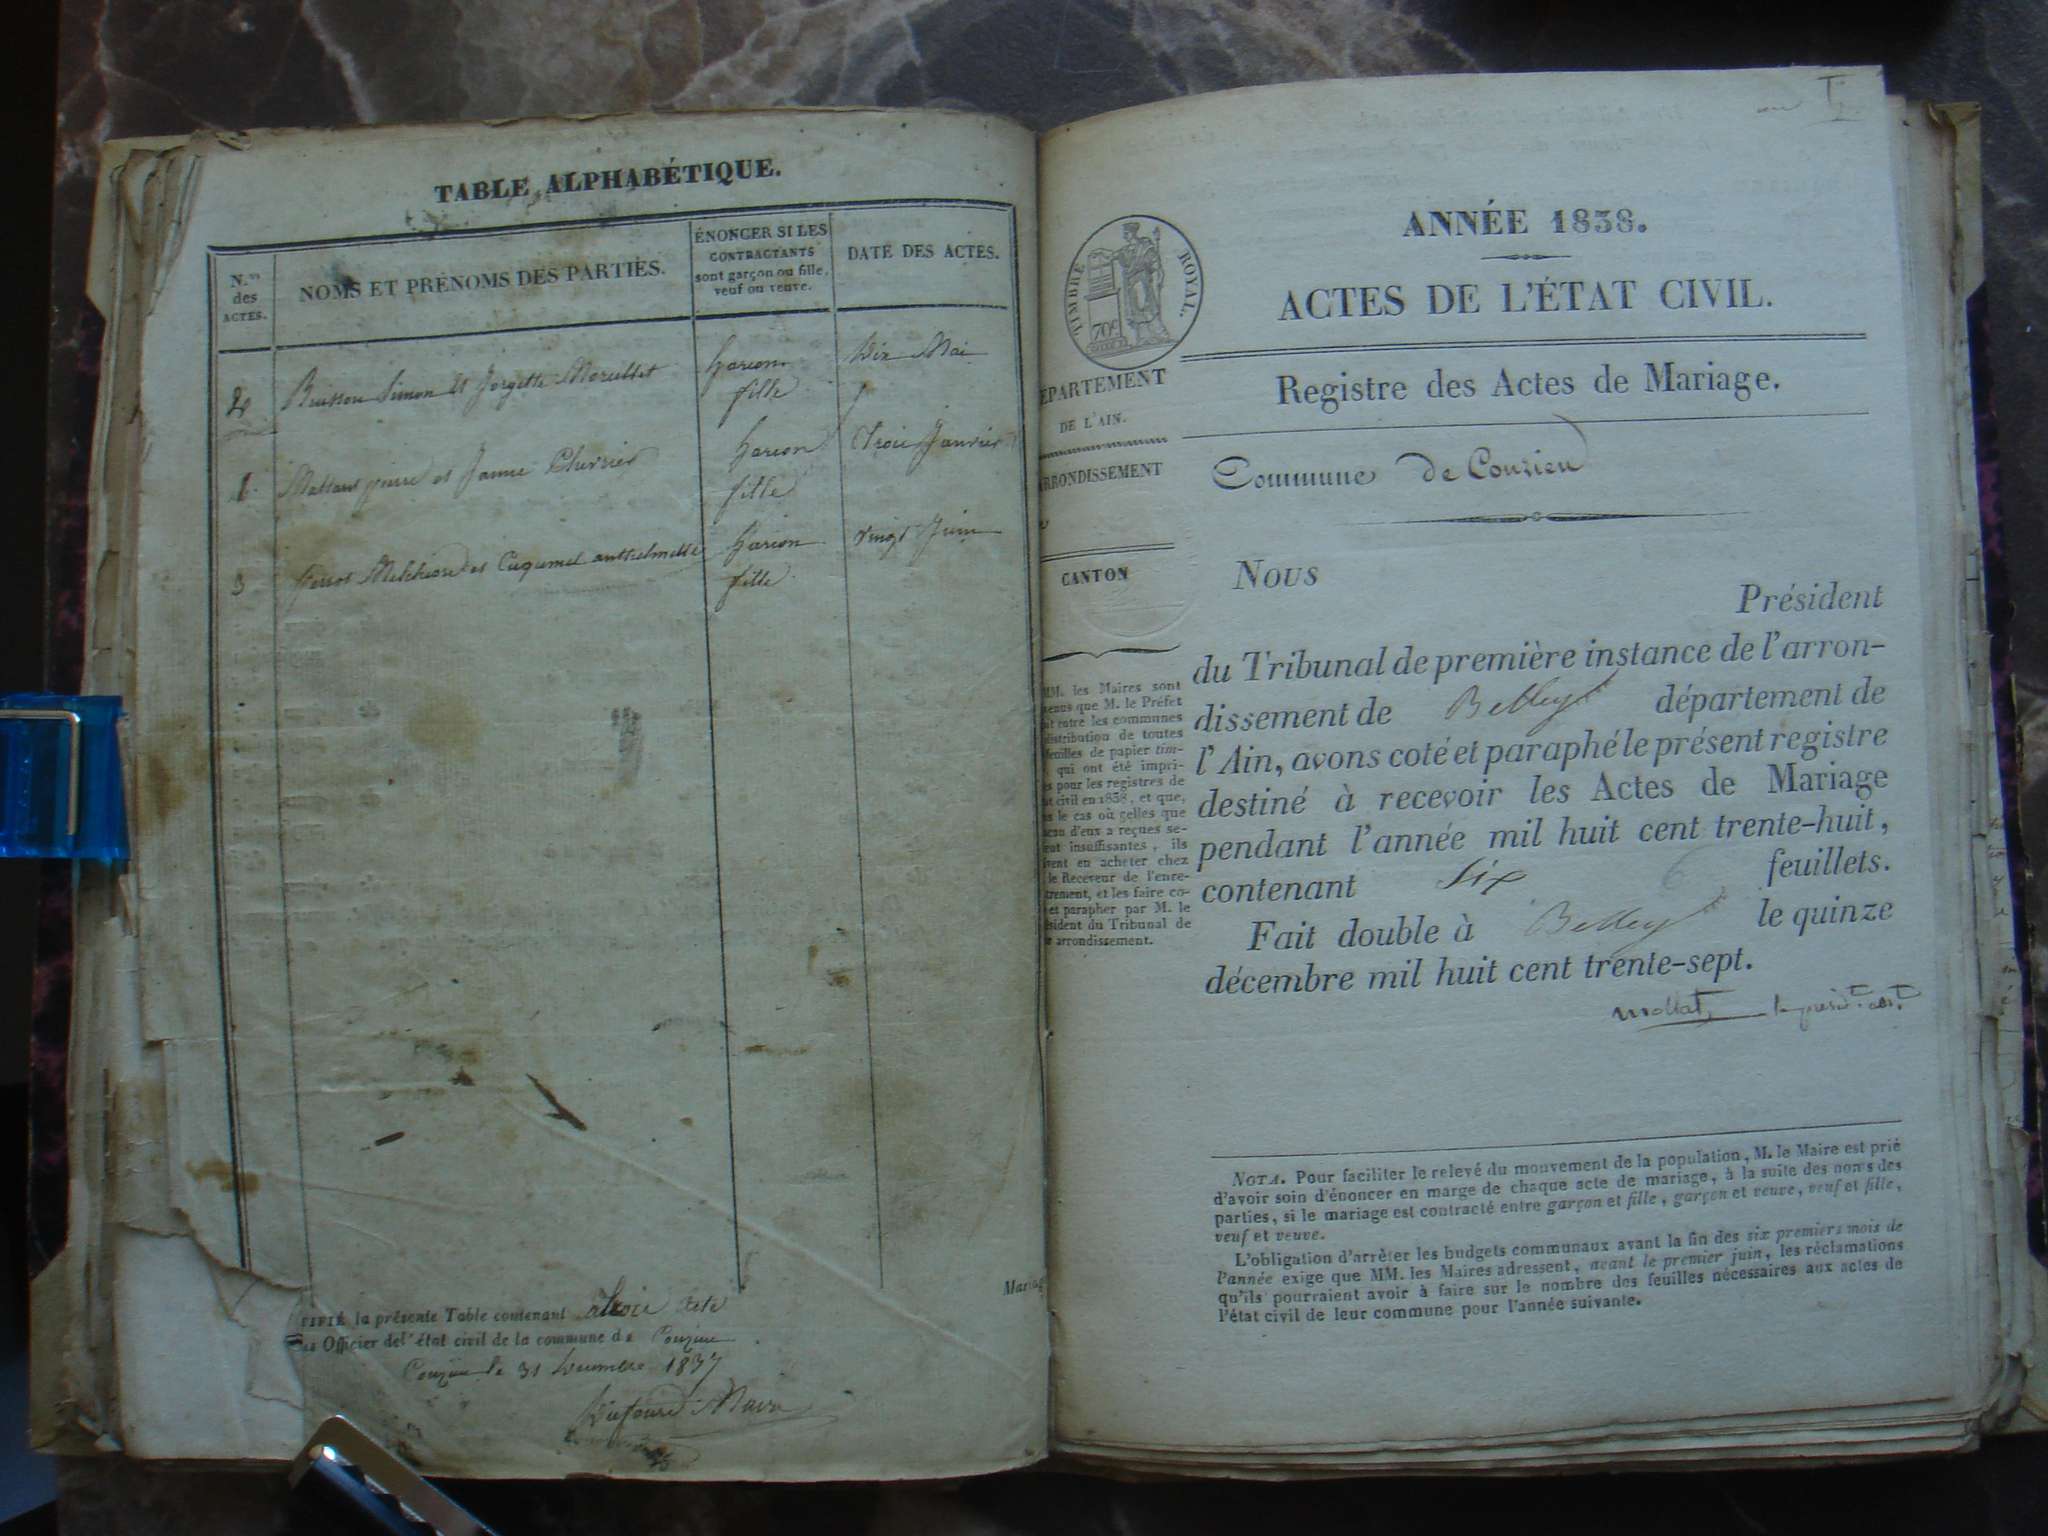 TABLE ALPHABÉTIQUE.
N.os des ACTES.
NOMS ET PRÉNOMS DES PARTIES.
ÉNONCER SI LES
CONTRACTANTS
sont garçon ou fille,
veuf ou veuve.
DATE DES ACTES.
2 Buisson Simon et Jorgette Marillet garçon Dix Mai
fille
1 Mattant pierre et Janne Chevrier garçon Trois Janvier
fille
3 perrot Melchior et Cuquemel garçon vingt Juin
fille
Mariag
TIFIÉ la présente Table contenant trois acte
Officier de l'état civil de la commune de Conzieu
Conzieu le 31 Decembre 1837
Dufour Maire
ANNÉE 1838.
ACTES DE L'ÉTAT CIVIL.
TIMBRE ROYAL.
70c
Registre des Actes de Mariage.
ÉPARTEMENT
DE L'AIN.
RRONDISSEMENT
CANTON
Commune de Conzieu
Nous
Président
du Tribunal de première instance de l'arron-
dissement de Belley département de
l'Ain, avons coté et paraphé le présent registre
destiné à recevoir les Actes de Mariage
pendant l'année mil huit cent trente-huit,
contenant six 6 feuillets.
Fait double à Belley le quinze
décembre mil huit cent trente-sept.
Mollat
MM. les Maires sont
enus que M. le Préfet
entre les communes
distribution de toutes
feuilles de papier tim-
qui ont été impri-
s pour les registres de
t civil en 1838, et que,
s le cas où celles que
acun d'eux a reçues se-
ent insuffisantes, ils
vent en acheter chez
le Receveur de l'enre-
trement, et les faire co-
et parapher par M. le
ésident du Tribunal de
r arrondissement.
NOTA. Pour faciliter le relevé du mouvement de la population, M. le Maire est prié
d'avoir soin d'énoncer en marge de chaque acte de mariage, à la suite des noms des
parties, si le mariage est contracté entre garçon et fille, garçon et veuve, veuf et fille,
veuf et veuve.
L'obligation d'arrêter les budgets communaux avant la fin des six premiers mois de
l'année exige que MM. les Maires adressent, avant le premier juin, les réclamations
qu'ils pourraient avoir à faire sur le nombre des feuilles nécessaires aux actes de
l'état civil de leur commune pour l'année suivante.